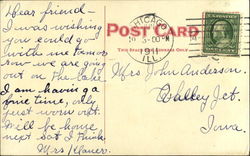 Dear friend—
I was wishing
you could go
with me tomor
row we are going
out on the lake.
I am having a
fine time, only
just worn out.
Will be home
next Sat I think.
Mrs
POST CARD
THIS SPACE FOR ADDRESS ONLY
CHICAGO
3-00 PM
1911
ILL.
Mrs John Anderson
Valley Jct.
Iowa.